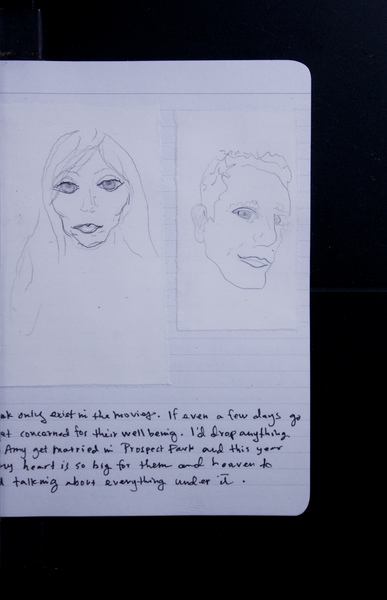 ak only exist in the movies. If even a few days go
et concerned for their well being. I'd drop anything
Amy get married in Prospect Park and this year
my heart is so big for them and heaven to
d talking about everything under it.